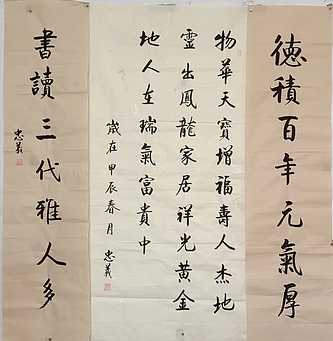 德積百年元氣厚
物華天寶增福壽人杰地
靈出鳳龍家居祥光黃金
地人在瑞氣富貴中
歲在甲辰春月 忠義
書讀三代雅人多
忠義